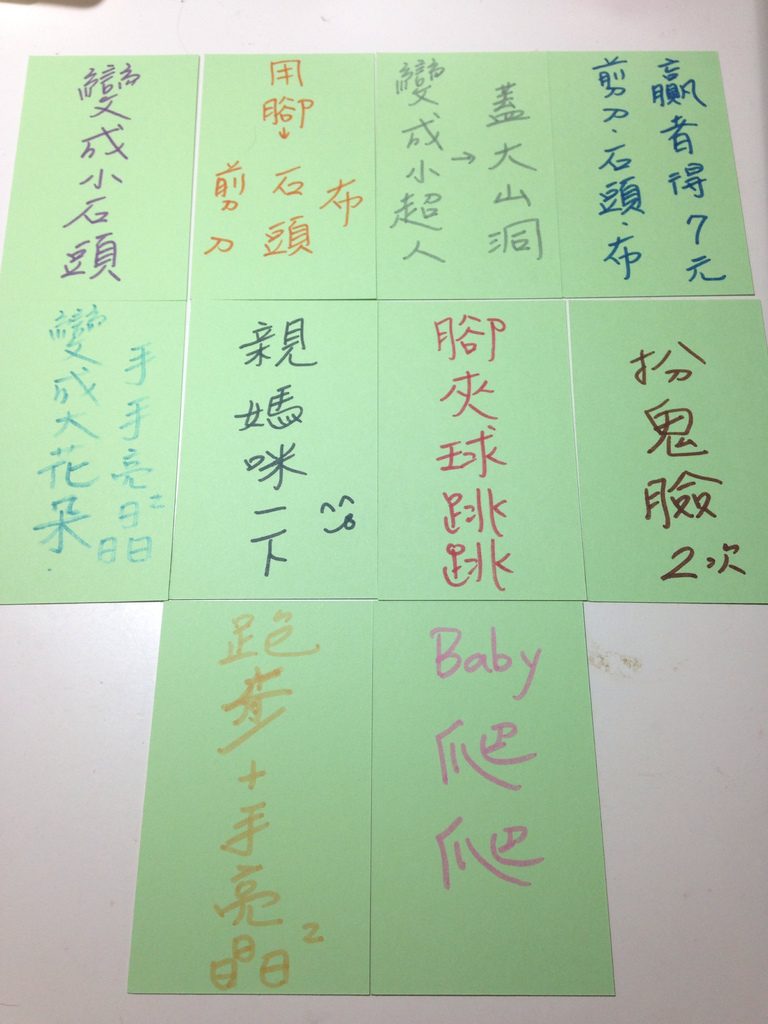 變成小石頭
用腳↓
剪刀
石頭
布
變成小超人
→蓋大山洞
贏者得7元
剪刀.石頭.布
變成大花朵
手手亮晶²晶
親媽咪一下
腳夾球跳跳
扮鬼臉2次
跑步+手亮晶²
Baby爬爬